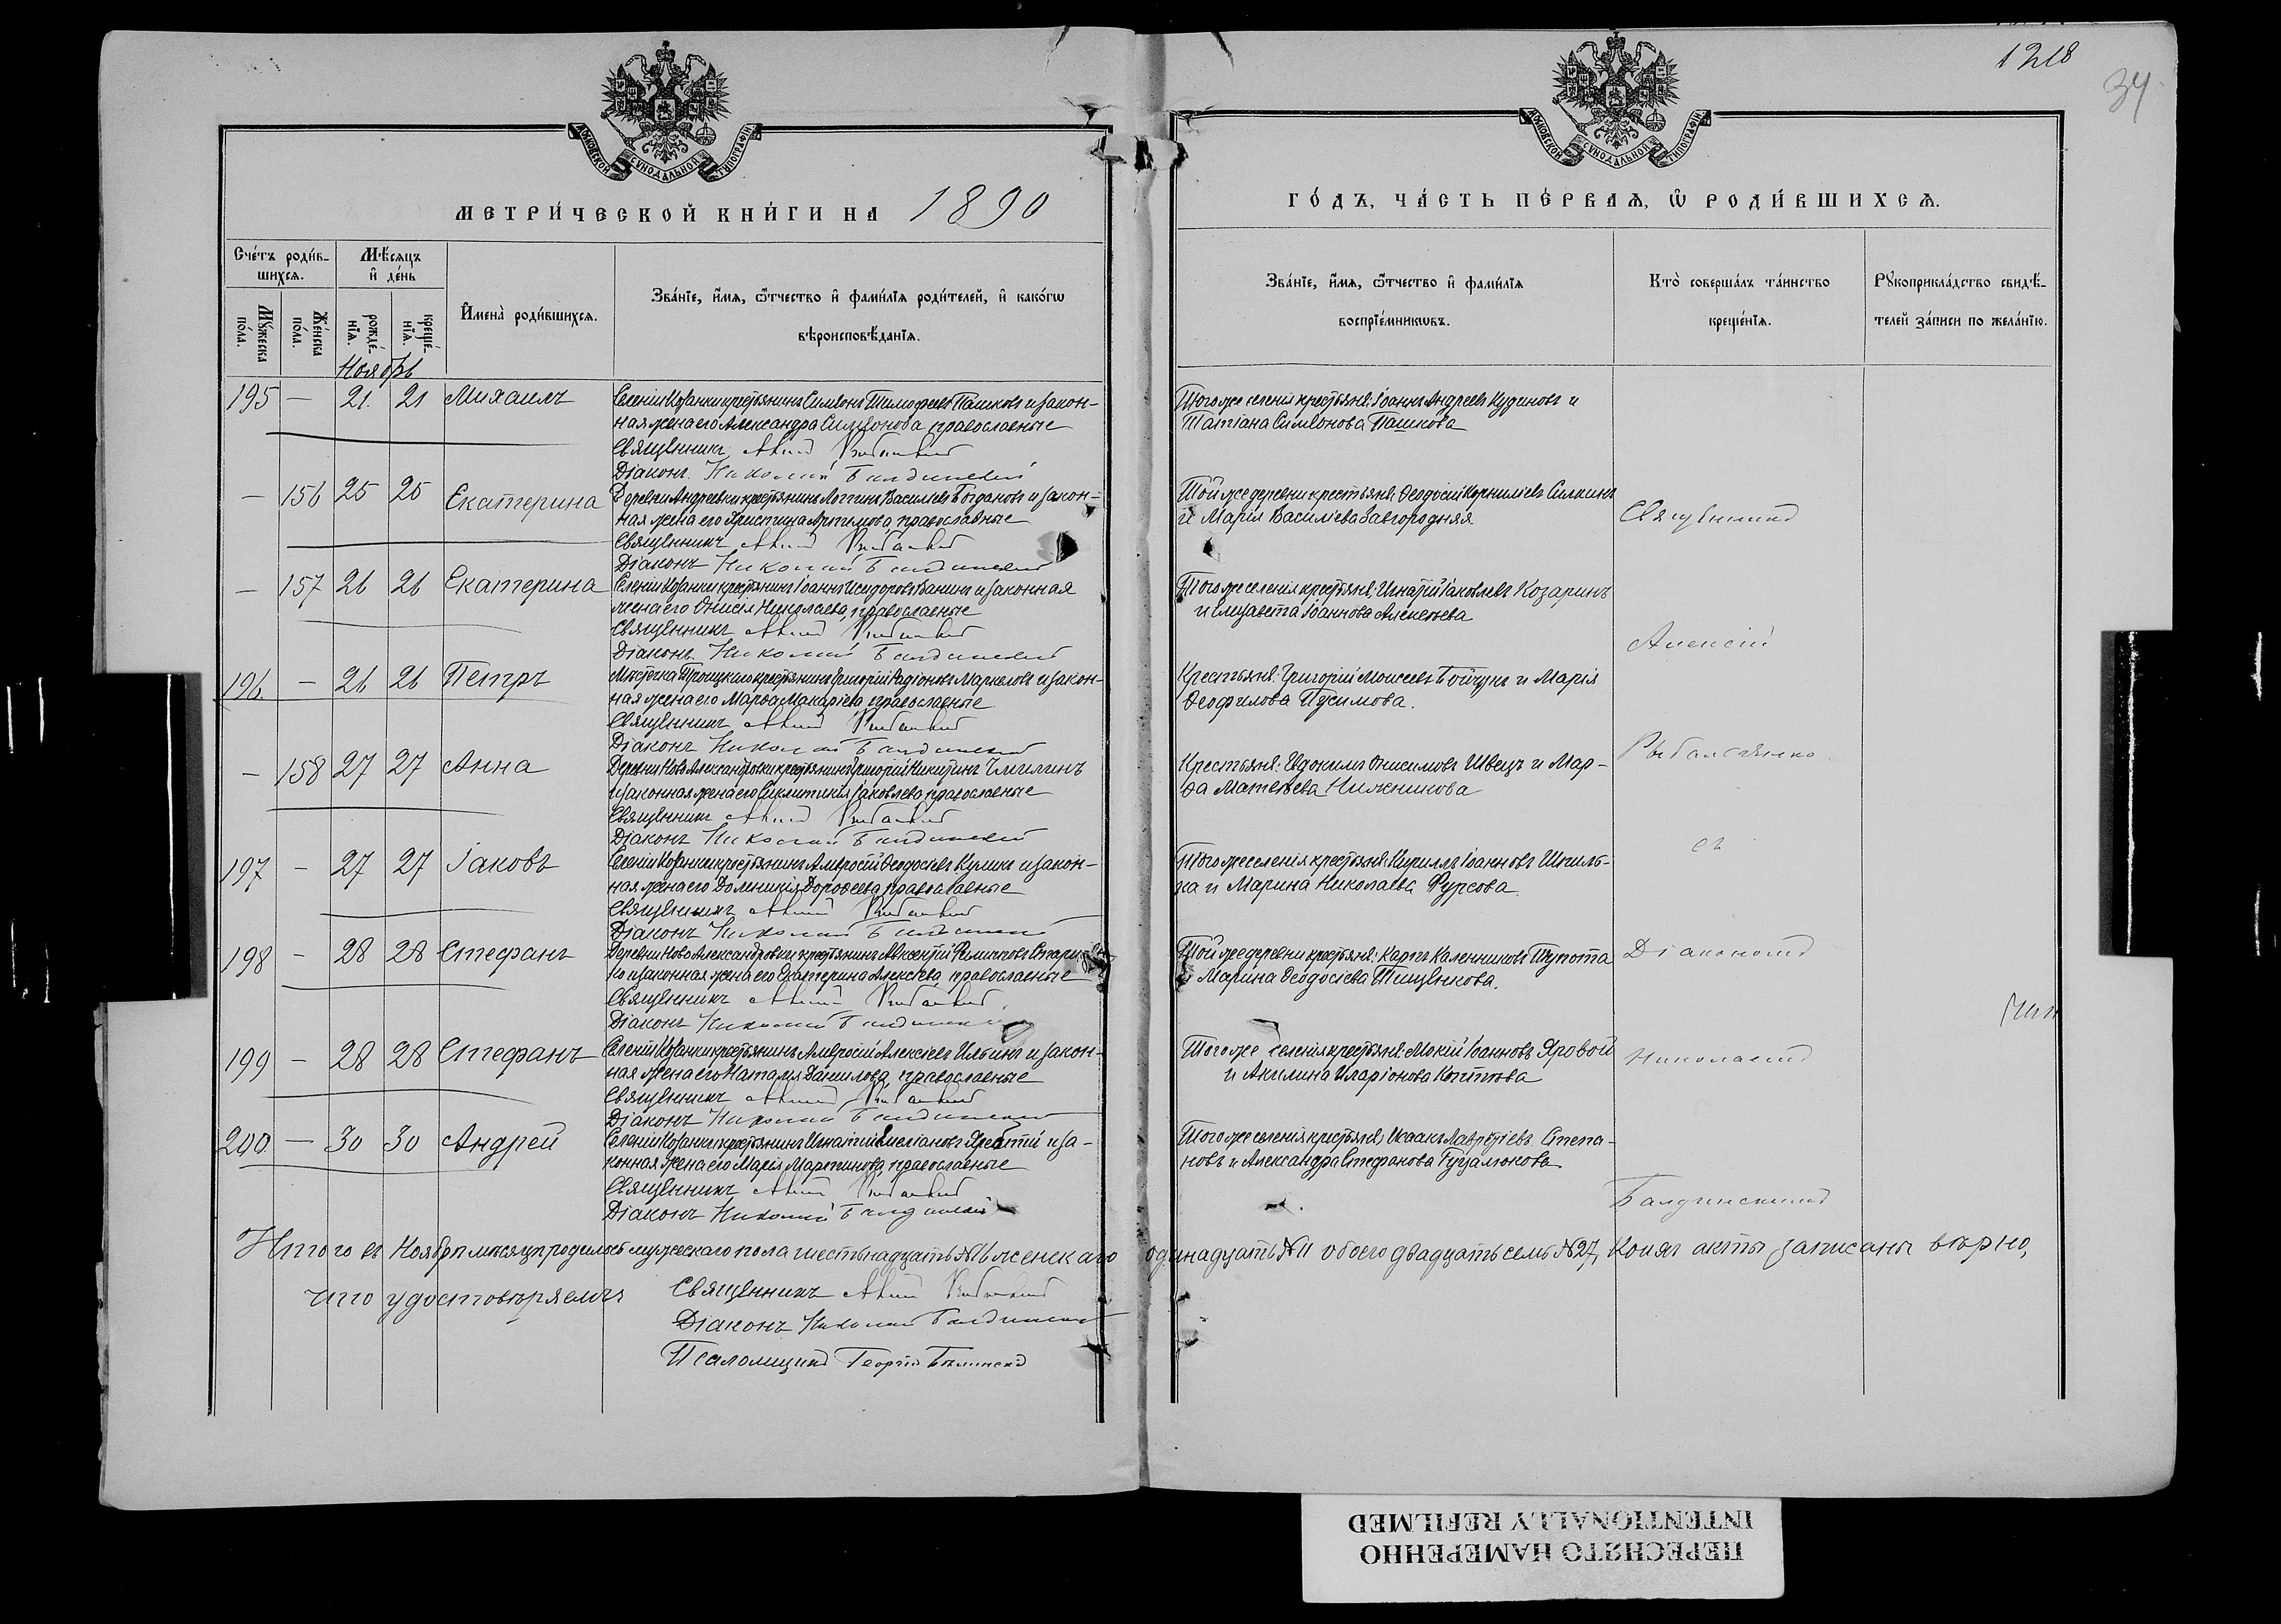 1218
34
МОСКОВСКОЙ СѴНОДАЛЬНОЙ ТИПОГРАФІИ
МОСКОВСКОЙ СѴНОДАЛЬНОЙ ТИПОГРАФІИ
МЕТРИ́ЧЕСКОЙ КНИ́ГИ НА 1890
ГО́ДЪ, ЧА́СТЬ ПЕ́РВАѦ, Ѡ҆ РОДИ́ВШИХСѦ.
Сче́тъ роди́в-
шихсѧ.
Мꙋ́жеска по́ла.
Же́нска по́ла.
Мѣ́сѧцъ
и҆ де́нь
рожде́-
нїѧ.
креще́-
нїѧ.
И҆мена̀ роди́вшихсѧ.
Зва́нїе, и҆́мѧ, ѻ҆́тчество и҆ фами́лїѧ роди́телей, и҆ како́гѡ
вѣроисповѣ́данїѧ.
Зва́нїе, и҆́мѧ, ѻ҆́тчество и҆ фами́лїѧ
воспрїе́мникѡвъ.
Кто̀ соверша́лъ та́инство
креще́нїѧ.
Рꙋкоприкла́дство свидѣ́-
телей за́писи по жела́нїю.
Ноябрь
195 — 21 21 Михаилъ
Селенія Казанки крестьянинъ Симеонъ Тимофеевъ Пашковъ и закон-
ная жена его Александра Симеонова, православные
Священникъ
Діаконъ Николай Балдинскій
Того же селенія крестьяне: Іоаннъ Андреевъ Кудиновъ и
Татіана Симеонова Пашкова
— 156 25 25 Екатерина
Деревни Андреевки крестьянинъ Логгинъ Василіевъ Богдановъ и закон-
ная жена его Христина Артемова, православные
Священникъ
Діаконъ Николай Балдинскій
Той же деревни крестьяне: Ѳеодосій Корниліевъ Силкинъ
и Марія Василіева Завгородняя
Священникъ
— 157 26 26 Екатерина
Селенія Казанки крестьянинъ Іоаннъ Исидоровъ Ванинъ и законная
жена его Онисія Николаева, православные
Священникъ
Діаконъ Николай Балдинскій
Того же селенія крестьяне: Игнатій Іаковлевъ Козаринъ
и Елизавета Іоаннова Алексеева
Алексій
196 — 26 26 Петръ
Местечка Троицкаго крестьянинъ Григорій Родіоновъ Маркеловъ и закон-
ная жена его Марѳа Макаріева, православные
Священникъ
Діаконъ Николай Балдинскій
Крестьяне: Григорій Моисеевъ Бойчукъ и Марія
Ѳеофилова Пусимова.
— 158 27 27 Анна
Деревни Ново Александровки крестьянинъ Григорій Никитинъ
и законная жена его Синклитикія Іаковлева, православные
Священникъ
Діаконъ Николай Балдинскій
Крестьяне: Евдокимъ Онисимовъ Швецъ и Мар-
ѳа Матвѣева Никникова
Рыбальченко
197 — 27 27 Іаковъ
Селенія Казанки крестьянинъ Амвросій Ѳеодосіевъ Куликъ и закон-
ная жена его Домникія Дороѳеева, православные
Священникъ
Діаконъ Николай Балдинскій
Того же селенія крестьяне: Кириллъ Іоанновъ Шпиль-
ка и Марина Николаева Фурсова.
съ
198 — 28 28 Стефанъ
Деревни Ново Александровки крестьянинъ Авксентій Филиповъ
ко и законная жена его Екатерина Алексеева, православные
Священникъ
Діаконъ Николай Балдинскій
Той же деревни крестьяне: Карпъ Каленниковъ Тупота
и Марина Ѳеодосіева Тищенкова.
Діакономъ
199 — 28 28 Стефанъ
Селенія Казанки крестьянинъ Амвросій Алексіевъ Ильинъ и закон-
ная жена его Наталія Даниилова, православные
Священникъ
Діаконъ Николай Балдинскій
Того же селенія крестьяне: Мокій Іоанновъ Яровой
и Акилина Иларіонова Коптева
Николаемъ
200 — 30 30 Андрей
Селенія Казанки крестьянинъ Игнатій Емеліановъ и за-
конная жена его Марія Мартинова, православные
Священникъ
Діаконъ Николай Балдинскій
Того же селенія крестьяне: Исаакъ Лаврентіевъ Степа-
новъ и Александра Стефанова Гузалюкова
Балдинскимъ
Итого въ Ноябрѣ мѣсяцѣ родилось мужескаго пола шестьнадцать №16 женскаго одинадцать №11 обоего двадцать семь №27, коихъ акты записаны вѣрно,
что удостовѣряемъ
Священникъ
Діаконъ Николай Балдинскій
Псаломщикъ Георгій
ПЕРЕСНЯТО НАМЕРЕННО
INTENTIONALLY REFILMED